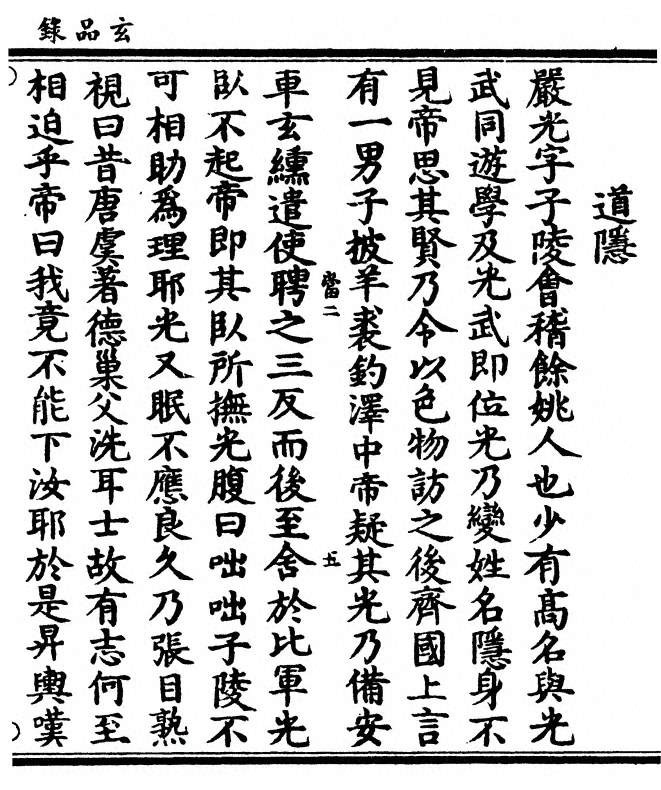 玄品錄
道隱
嚴光字子陵會稽餘姚人也少有高名與光
武同遊學及光武即位光乃變姓名隱身不
見帝思其賢乃令以色物訪之後齊國上言
有一男子披羊裘釣澤中帝疑其光乃備安
當二
五
車玄纁遣使聘之三反而後至舍於比軍光
臥不起帝即其臥所撫光腹曰咄咄子陵不
可相助為理耶光又眠不應良久乃張目熟
視曰昔唐虞著德巢父洗耳士故有志何至
相迫乎帝曰我竟不能下汝耶於是昇輿嘆